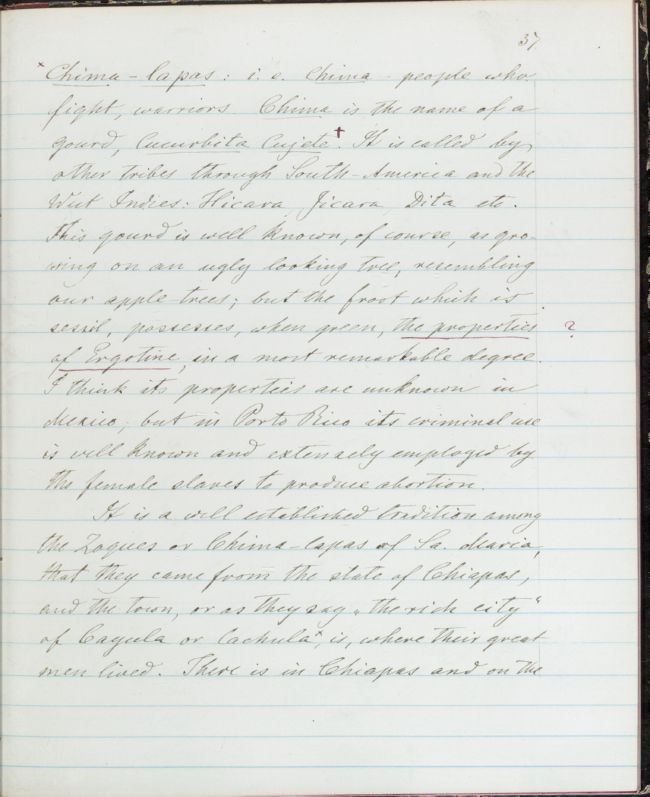 37
× Chima-lapas: i. e. Chima - people who
fight, warriors. Chima is the name of a
gourd, Cucurbita Cujete.† It is called by
other tribes through South-America and the
West Indies: Hicara Jicara Dita etc.
This gourd is well known, of course, as gro-
wing on an ugly looking tree, resembling
our apple-trees; but the froot which is
sessil, possesses, when green, the properties ?
of Ergotine, in a most remarkable degree.
I think its properties are unknown in
Mexico; but in Porto Rico its criminal use
is well known and extensely employed by
the female slaves to produce abortion.
It is a well established tradition among
the Zoques or Chima-lapas of Sa. Maria,
that they came from the state of Chiapas,
and the town, or as they say „the rich city“
of Cagula or Cachula×, is, where their great
men lived. There is in Chiapas and on the